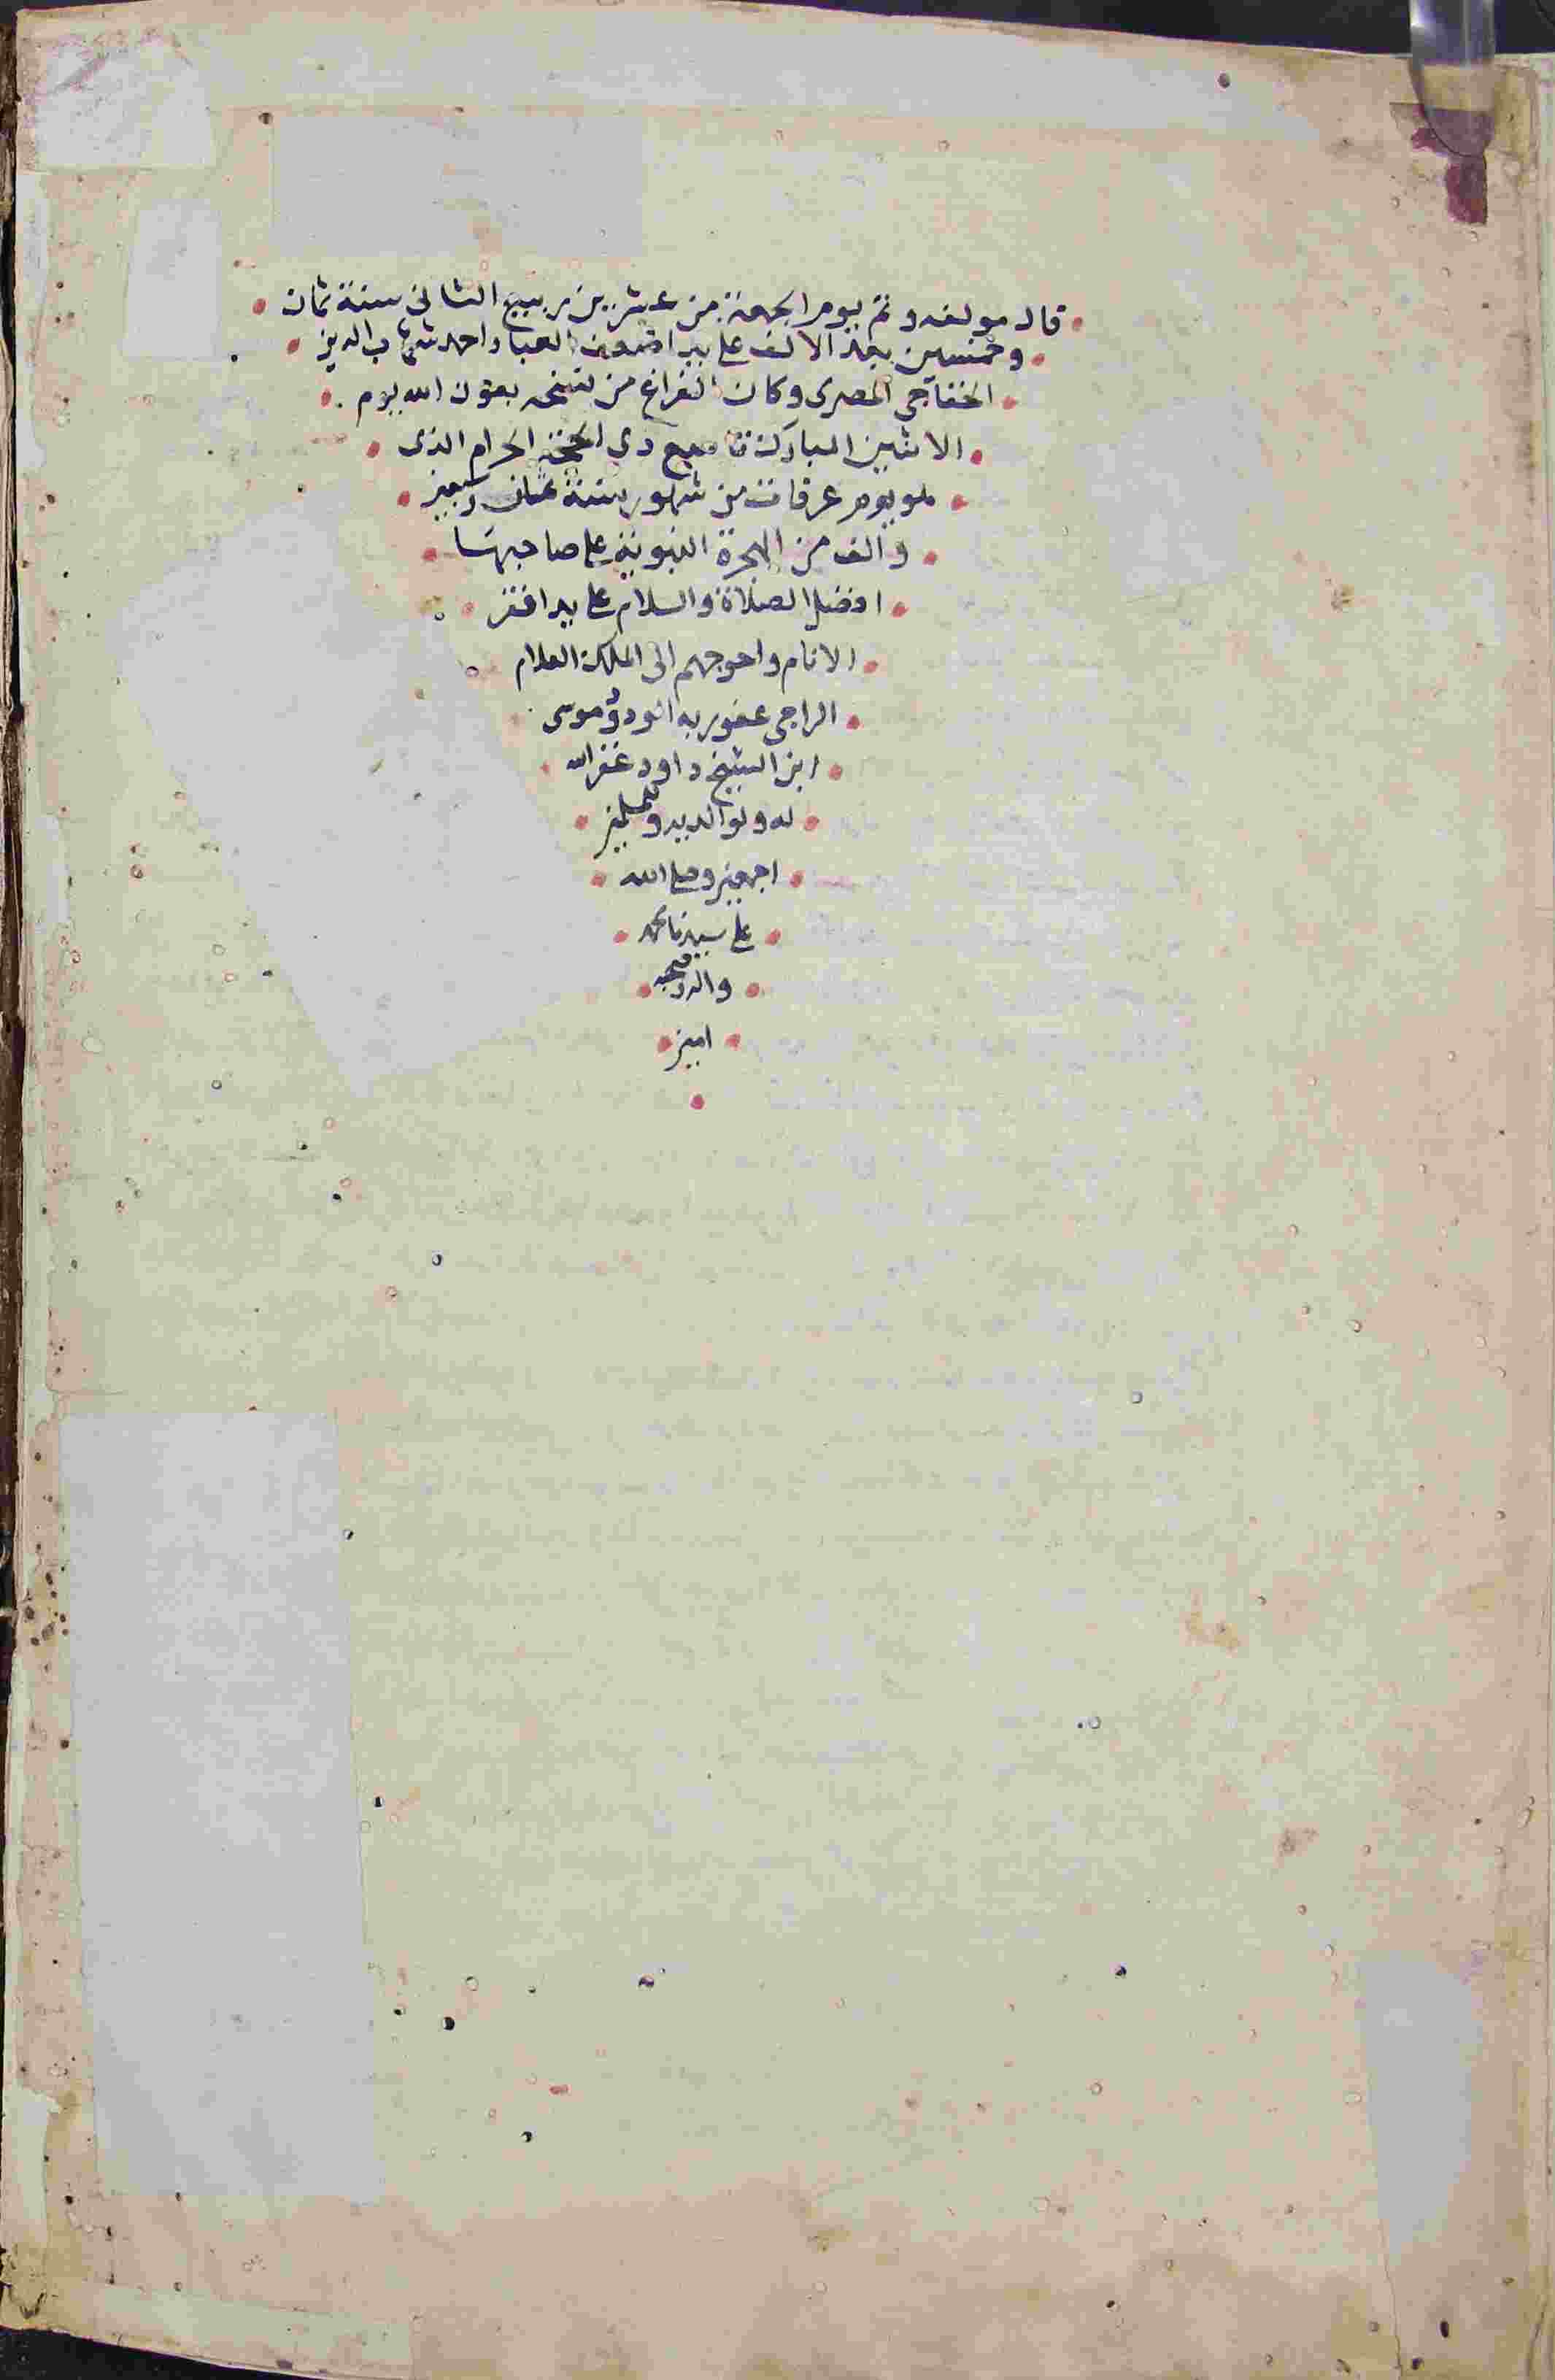 قال مولفه وتم يوم الجمعة من عشرين ربيع الثانى سنة ثمان
وخمسين بعد الالف على يد اضعف العباد احمد شهاب الدين
الخفاجى المصرى وكان الفراغ من نسخه بعون الله يوم
الاثنين المبارك تاسع ذى الحجة الحرام الذى
هو يوم عرفات من شهور سنة ثمان وسبعين
والف من الهجرة النبوية على صاحبها
افضل الصلاة والسلام على يد افقر
الانام واحوجهم الى الملك العلام
الراجى عفو ربه الودود موسى
ابن الشيخ داود غفر الله
له ولوالديه وللمسلمين
اجمعين وصلى الله
على سيدنا محمد
واله وصحبه
امين